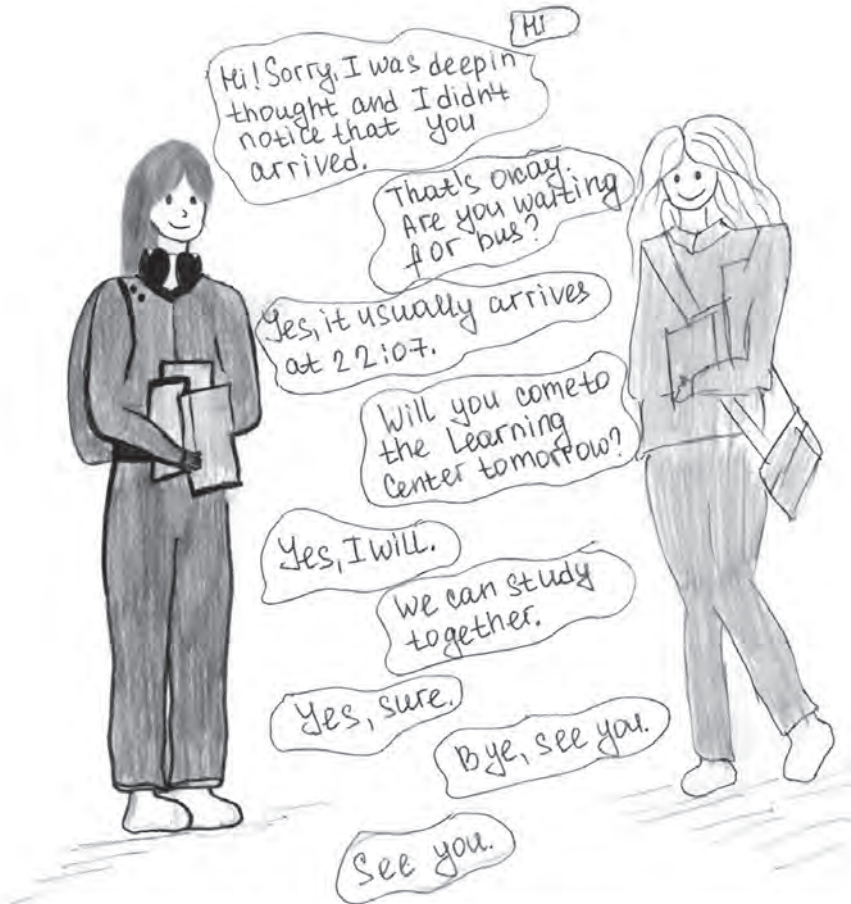 Hi
Hi! Sorry, I was deep in
thought and I didn't
notice that you
arrived.
That's okay.
Are you waiting
for bus?
Yes, it usually arrives
at 22:07.
Will you come to
the Learning
Center tomorrow?
Yes, I will.
We can study
together.
Yes, sure.
Bye, see you.
See you.